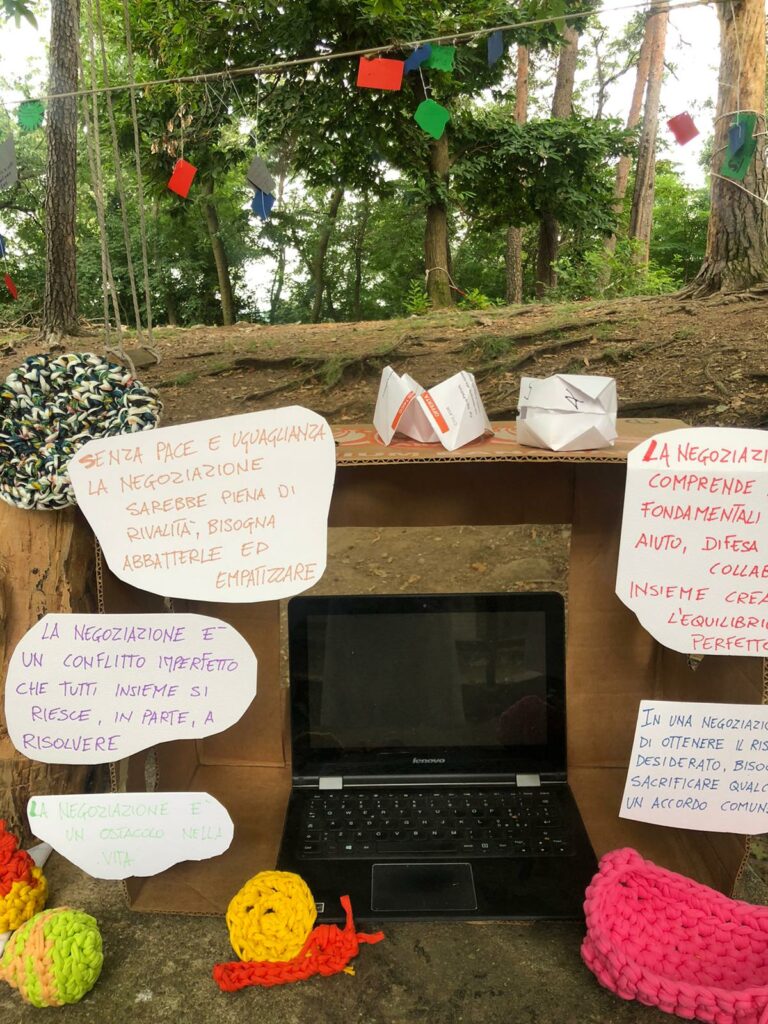 SENZA PACE E UGUAGLIANZA
LA NEGOZIAZIONE
SAREBBE PIENA DI
RIVALITÀ, BISOGNA
ABBATTERLE ED
EMPATIZZARE
LA NEGOZIAZIONE E'
UN CONFLITTO IMPERFETTO
CHE TUTTI INSIEME SI
RIESCE, IN PARTE, A
RISOLVERE
LA NEGOZIAZIONE E'
UN OSTACOLO NELLA
VITA
LA NEGOZIAZI
COMPRENDE
FONDAMENTALI
AIUTO, DIFESA
COLLAB
INSIEME CREA
L'EQUILIBRI
PERFETTO
IN UNA NEGOZIAZIO
DI OTTENERE IL RIS
DESIDERATO, BISO
SACRIFICARE QUALC
UN ACCORDO COMUN
lenovo